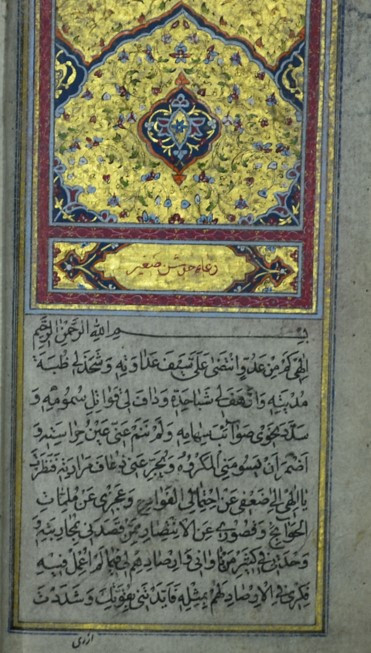 دعاء جوشن صغير
بسم الله الرحمن الرحيم
الهي كم من عدو انتضى علي سيف عداوته وشحذ لي ظبة
مديته وارهف لي شباحده وداف لي قواتل سمومه و
سدد نحوي صوائب سهامه ولم تنم عني عين حراسته و
اضمر ان يسومني المكروه ويجرعني ذعاف مرارته فنظرت
يا الهي الى ضعفي عن احتمال الفوادح وعجزي عن ملمات
الحوائج وقصوري عن الانتصار ممن قصدني بمحاربته و
وحدتي في كثير من ناواني وارصادهم لي فيما لم اعمل فيه
فكري في الارصاد لهم بمثله فايدتني بقوتك وشددت
ازری